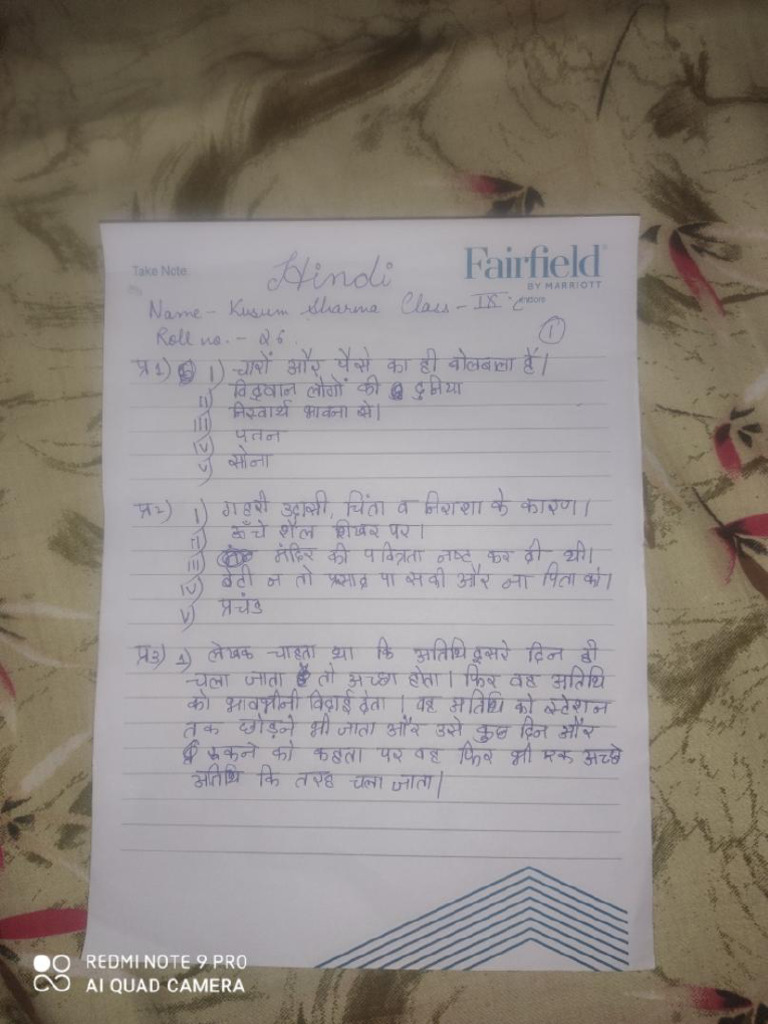 Take Note
Hindi
Fairfield
BY MARRIOTT
Indore
Name - Kusum Sharma Class - IX - C
Roll no. - 26.
1
प्र1) I) चारों और पैसे का ही बोलबाला है।
II) विद्वान लोगों की दुनिया
III) निस्वार्थ भावना से।
IV) पतन
V) सोना
प्र2) I) गहरी उदासी, चिंता व निराशा के कारण।
II) ऊँचे शैल शिखर पर।
III) मंदिर की पवित्रता नष्ट कर दी थी।
IV) बेटी न तो प्रसाद पा सकी और ना पिता को।
V) प्रचंड
प्र3) 1) लेखक चाहता था कि अतिथि दूसरे दिन ही
चला जाता तो अच्छा होता। फिर वह अतिथि
को भावभीनी विदाई देता। वह अतिथि को स्टेशन
तक छोड़ने भी जाता और उसे कुछ दिन और
रुकने को कहता पर वह फिर भी एक अच्छे
अतिथि कि तरह चला जाता।
REDMI NOTE 9 PRO
AI QUAD CAMERA